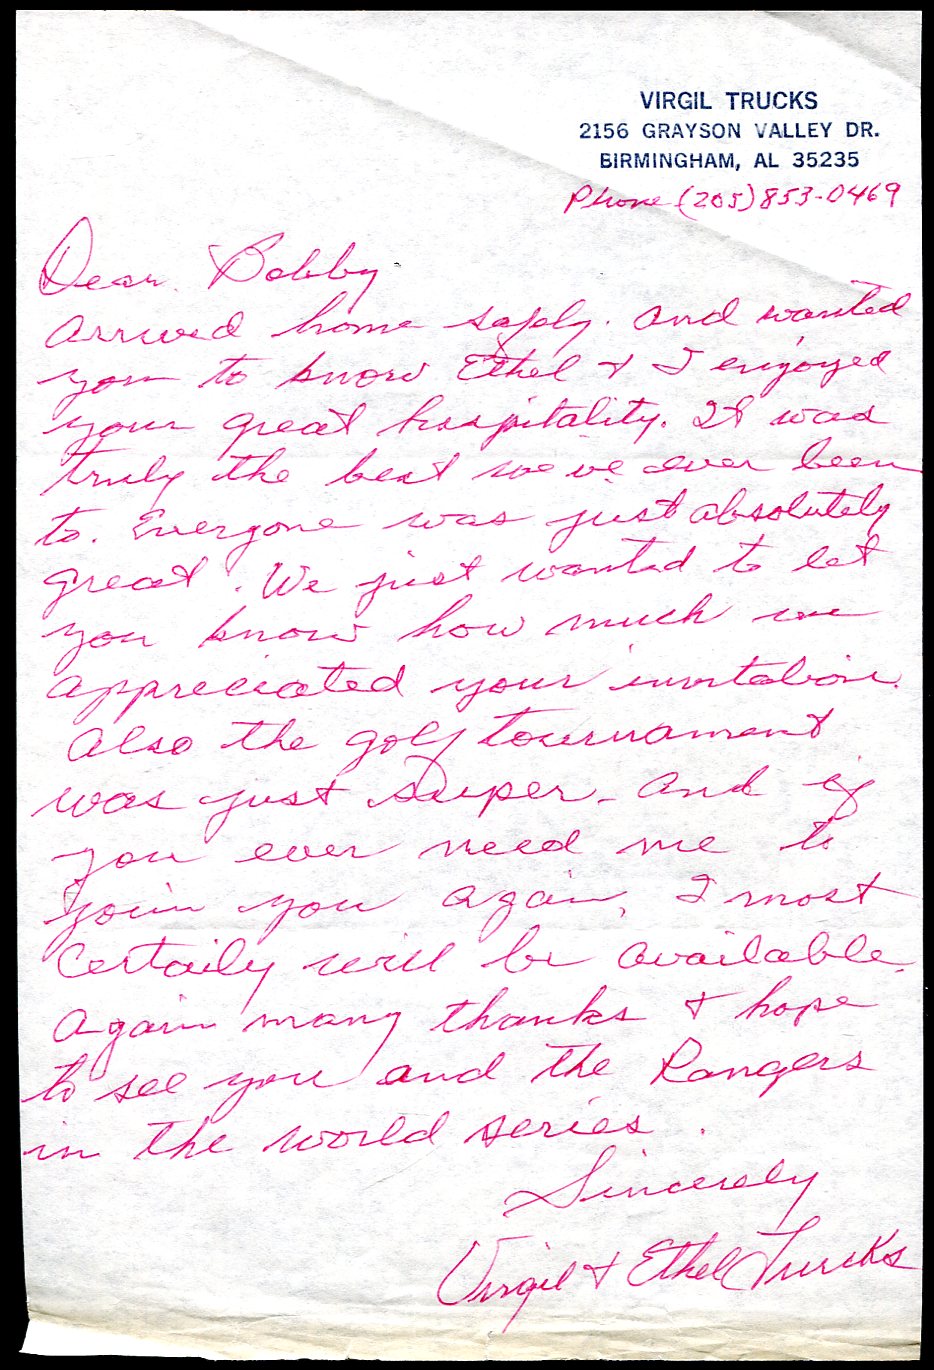 VIRGIL TRUCKS
2156 GRAYSON VALLEY DR.
BIRMINGHAM, AL 35235
Phone (205) 853-0469
Dear Bobby
Arrived home safely. and wanted
you to know Ethel & I enjoyed
your great hospitality. It was
truly the best we've ever been
to. Everyone was just absolutely
great. We just wanted to let
you know how much we
appreciated your invitation.
Also the golf tournament
was just super - and if
you ever need me to
join you again, I most
certaily will be available.
Again many thanks & hope
to see you and the Rangers
in the world series.
Sincerely
Virgil & Ethel Trucks